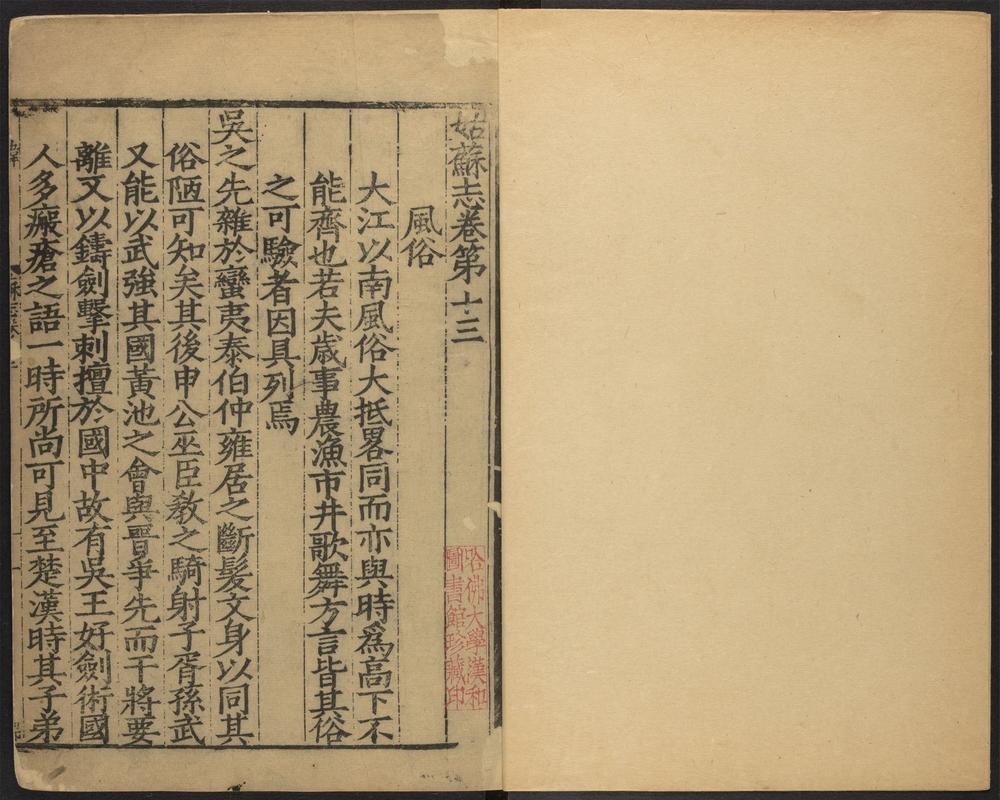 姑蘇志卷第十三
風俗
大江以南風俗大抵畧同而亦與時爲高下不
能齊也若夫歲事農漁市井歌舞方言皆其俗
之可驗者因具列焉
吳之先雜於蠻夷泰伯仲雍居之斷髮文身以同其
俗陋可知矣其後申公巫臣敎之騎射子胥孫武
又能以武強其國黃池之會與晋爭先而干將要
離又以鑄劍擊刺擅於國中故有吳王好劍術國
人多瘢瘡之語一時所尚可見至楚漢時其子弟
哈佛大學漢和
圖書館珍藏印